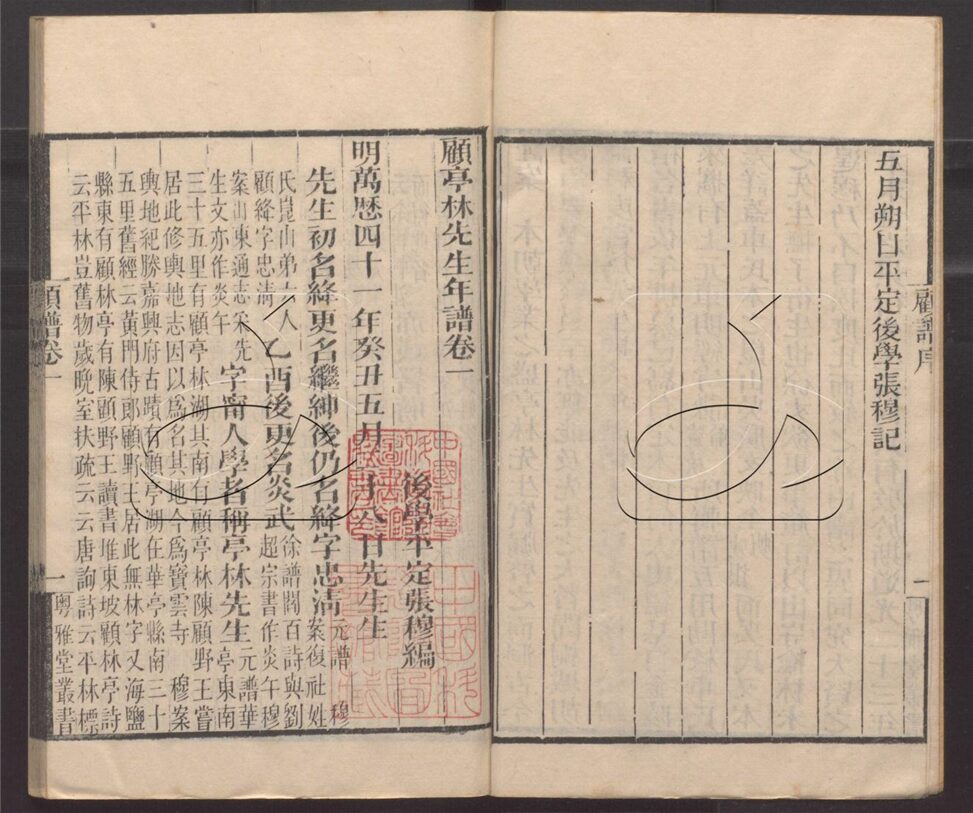 五月朔日平定後學張穆記
顧譜序
一
顧亭林先生年譜卷一
後學平定張穆編
明萬歷四十一年癸丑五月二十八日先生生
先生初名絳更名繼紳後仍名絳字忠清元譜 穆案復社姓
氏崑山弟人顧絳字忠清乙酉後更名炎武徐譜閻百詩與劉超宗書作炎午穆
案山東通志宋先生文亦作炎午字甯人學者稱亭林先生元譜華亭東南
三十五里有顧亭林湖其南有顧亭林陳顧野王嘗
居此修輿地志因以爲名其地今爲寶雲寺 穆案
輿地紀勝嘉興府古蹟有顧亭湖在華亭縣南三十
五里舊經云黃門侍郎顧野王居此無林字又海鹽
縣東有顧林亭有陳顧野王讀書堆東坡顧林亭詩
云平林豈舊物歲晚空扶疏云云唐詢詩云平林標
顧譜卷一
一
粵雅堂叢書